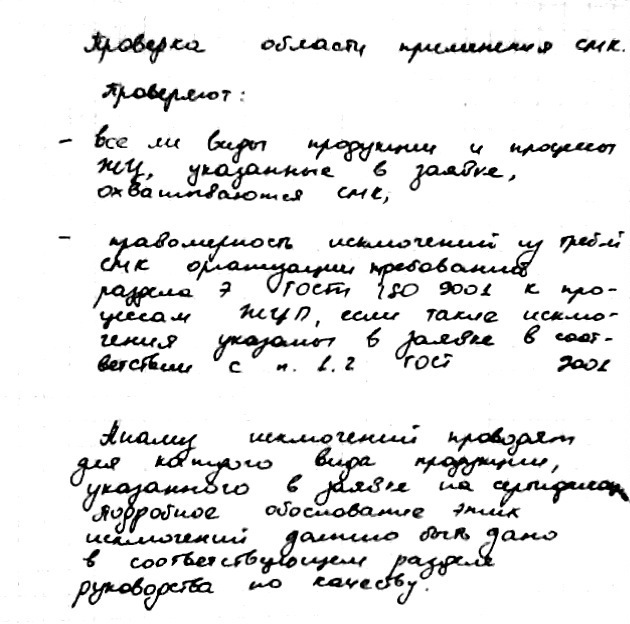 Проверка области применения СМК.
Проверяют:
- все ли виды продукции и процессы
ЖЦ, указанные в заявке,
охватываются СМК;
- правомерность исключений из треб-й
СМК организации требований
раздела 7 ГОСТ ISO 9001 к про-
цессам ЖЦП, если такие исклю-
чения указаны в заявке в соот-
ветствии с п. 1.2 ГОСТ 9001
Анализ исключений проводят
для каждого вида продукции,
указанного в заявке на
Подробное обоснование этих
исключений должно быть дано
в соответствующем разделе
руководства по качеству.